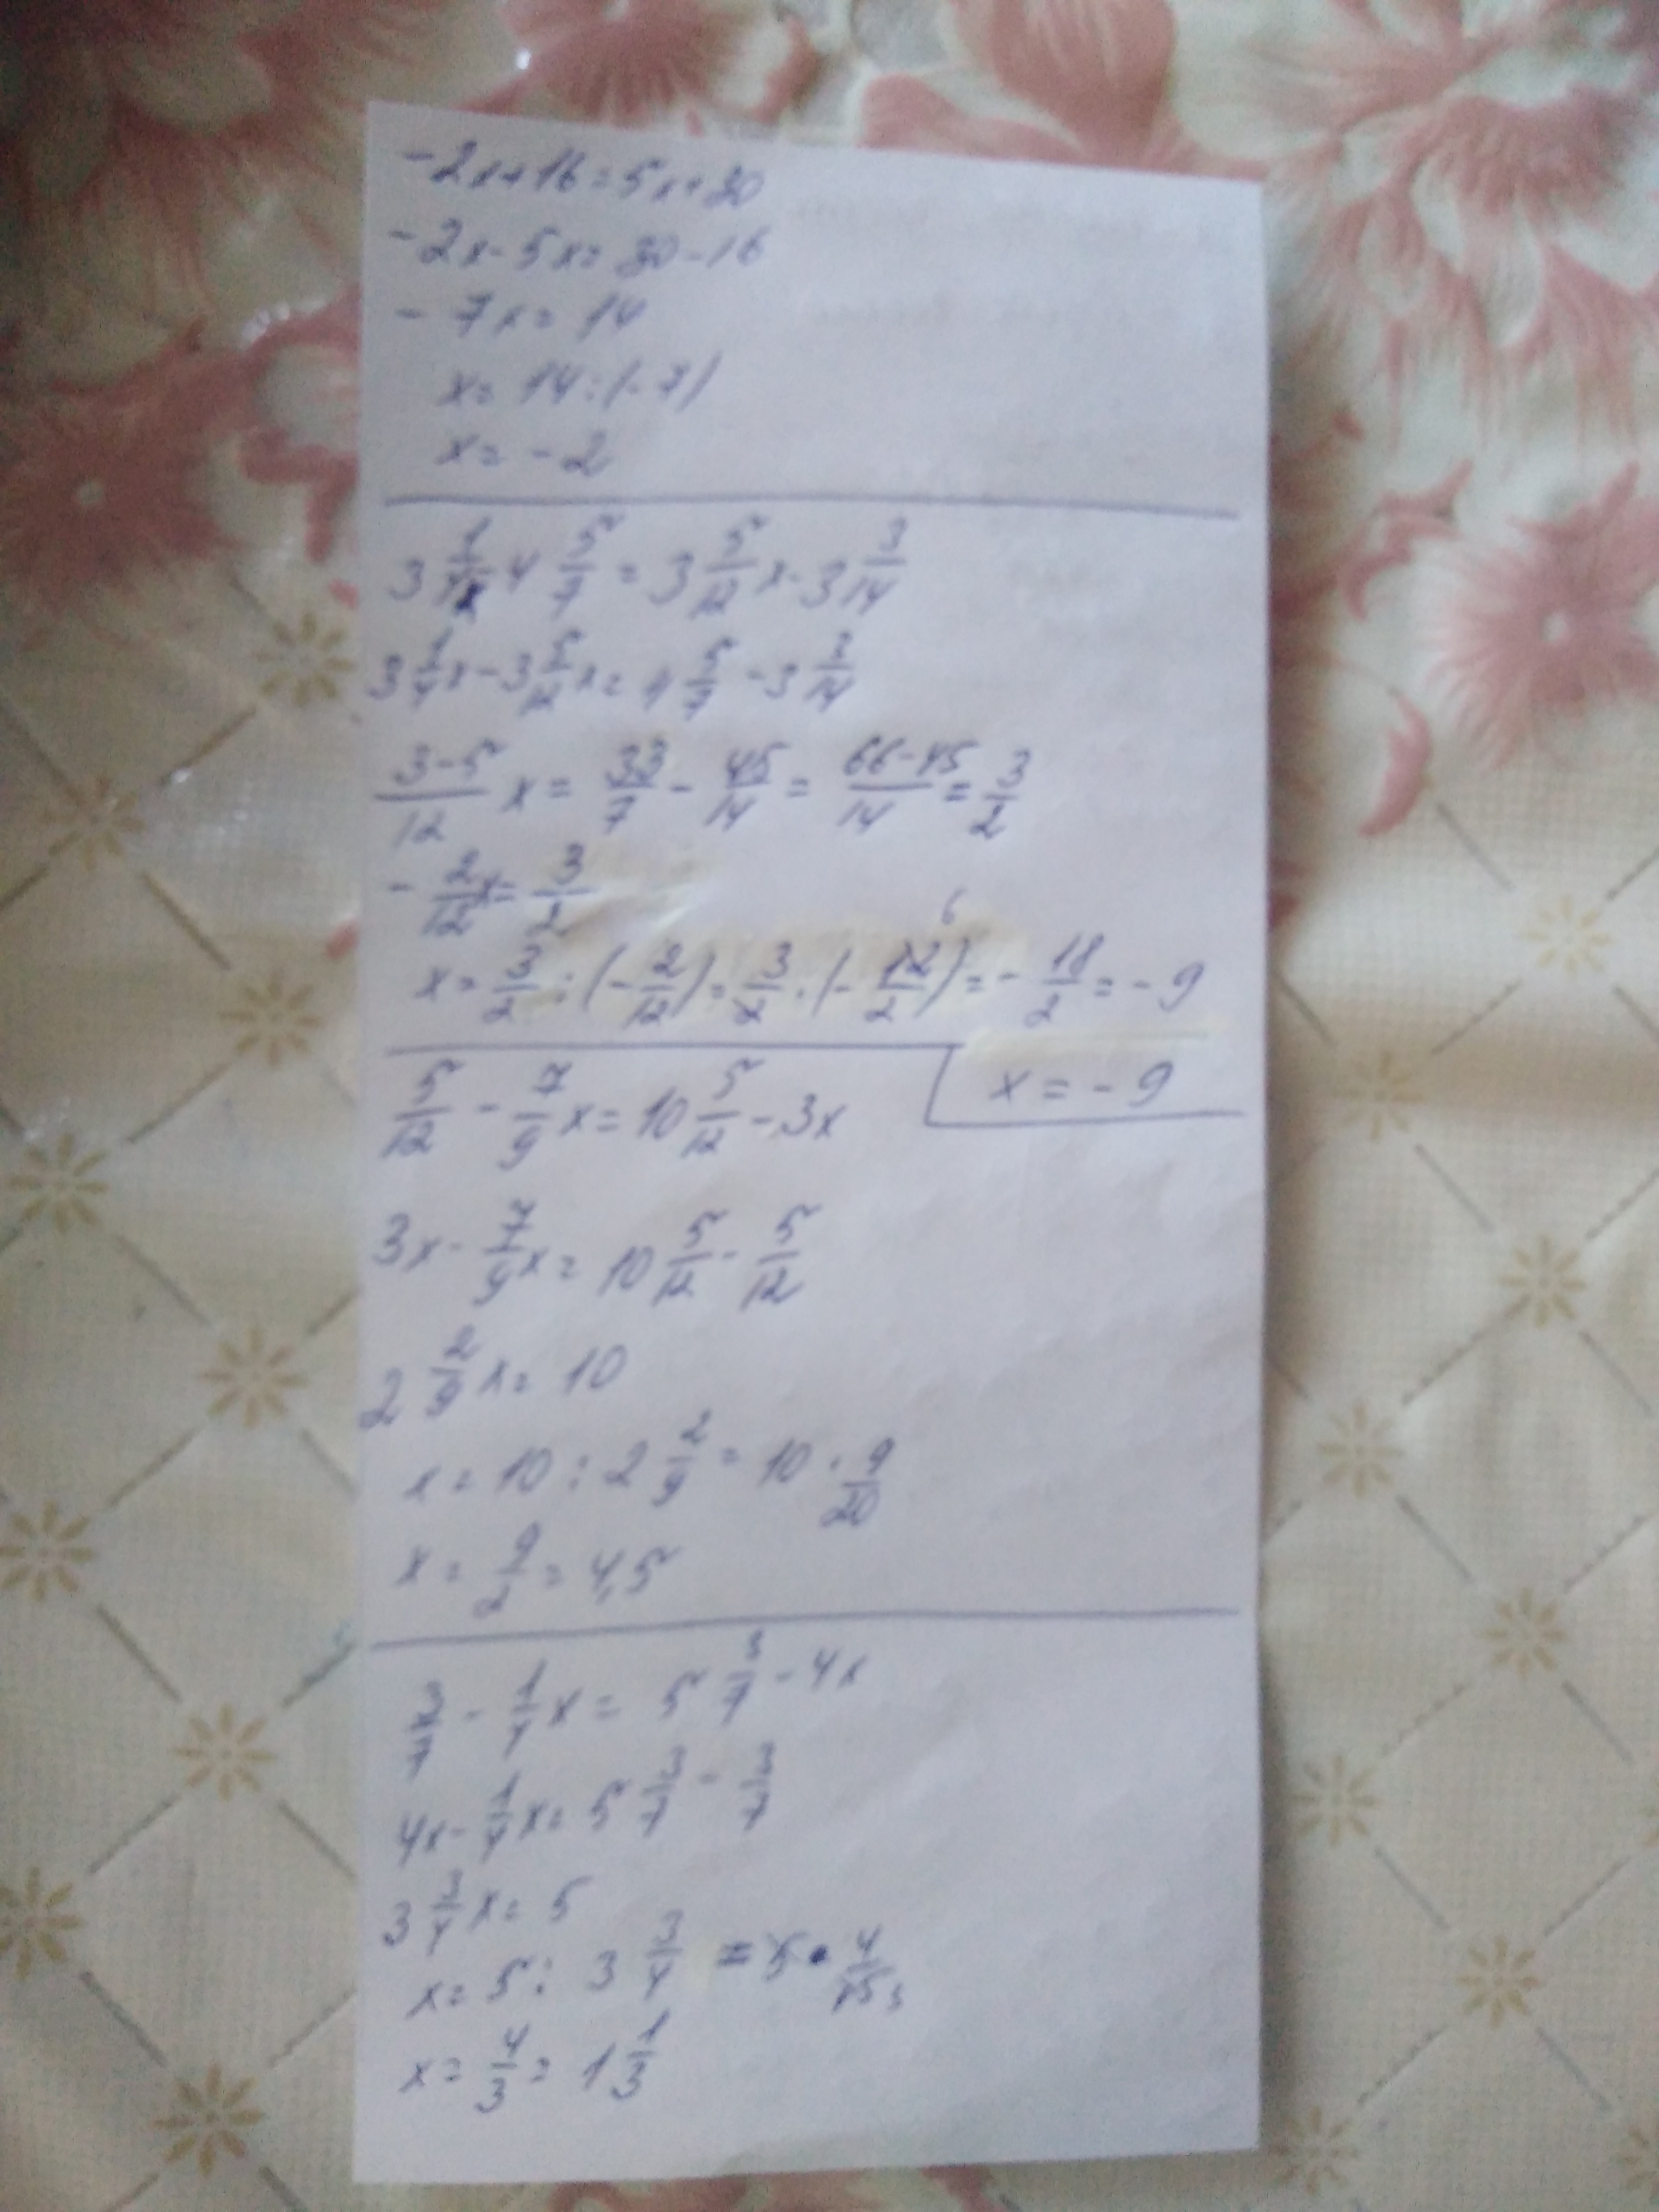 -2x+16=5x+30
-2x-5x=30-16
-7x=14
x=14:(-7)
x=-2
3 1/4x 4 5/7 = 3 5/12 x - 3 3/14
3 1/4 x - 3 5/12 x = 4 5/7 - 3 3/14
(3-5)/12 x = 33/7 - 45/14 = (66-45)/14 = 3/2
- 2/12 x = 3/2
x = 3/2 : (- 2/12) = 3/2 · (- 12/2) = - 18/2 = -9
x = -9
5/12 - 7/9 x = 10 5/12 - 3x
3x - 7/9 x = 10 5/12 - 5/12
2 2/9 x = 10
x = 10 : 2 2/9 = 10 · 9/20
x = 9/2 = 4,5
3/7 - 1/4 x = 5 3/7 - 4x
4x - 1/4 x = 5 3/7 - 3/7
3 3/4 x = 5
x = 5 : 3 3/4 = 5 · 4/15 3
x = 4/3 = 1 1/3